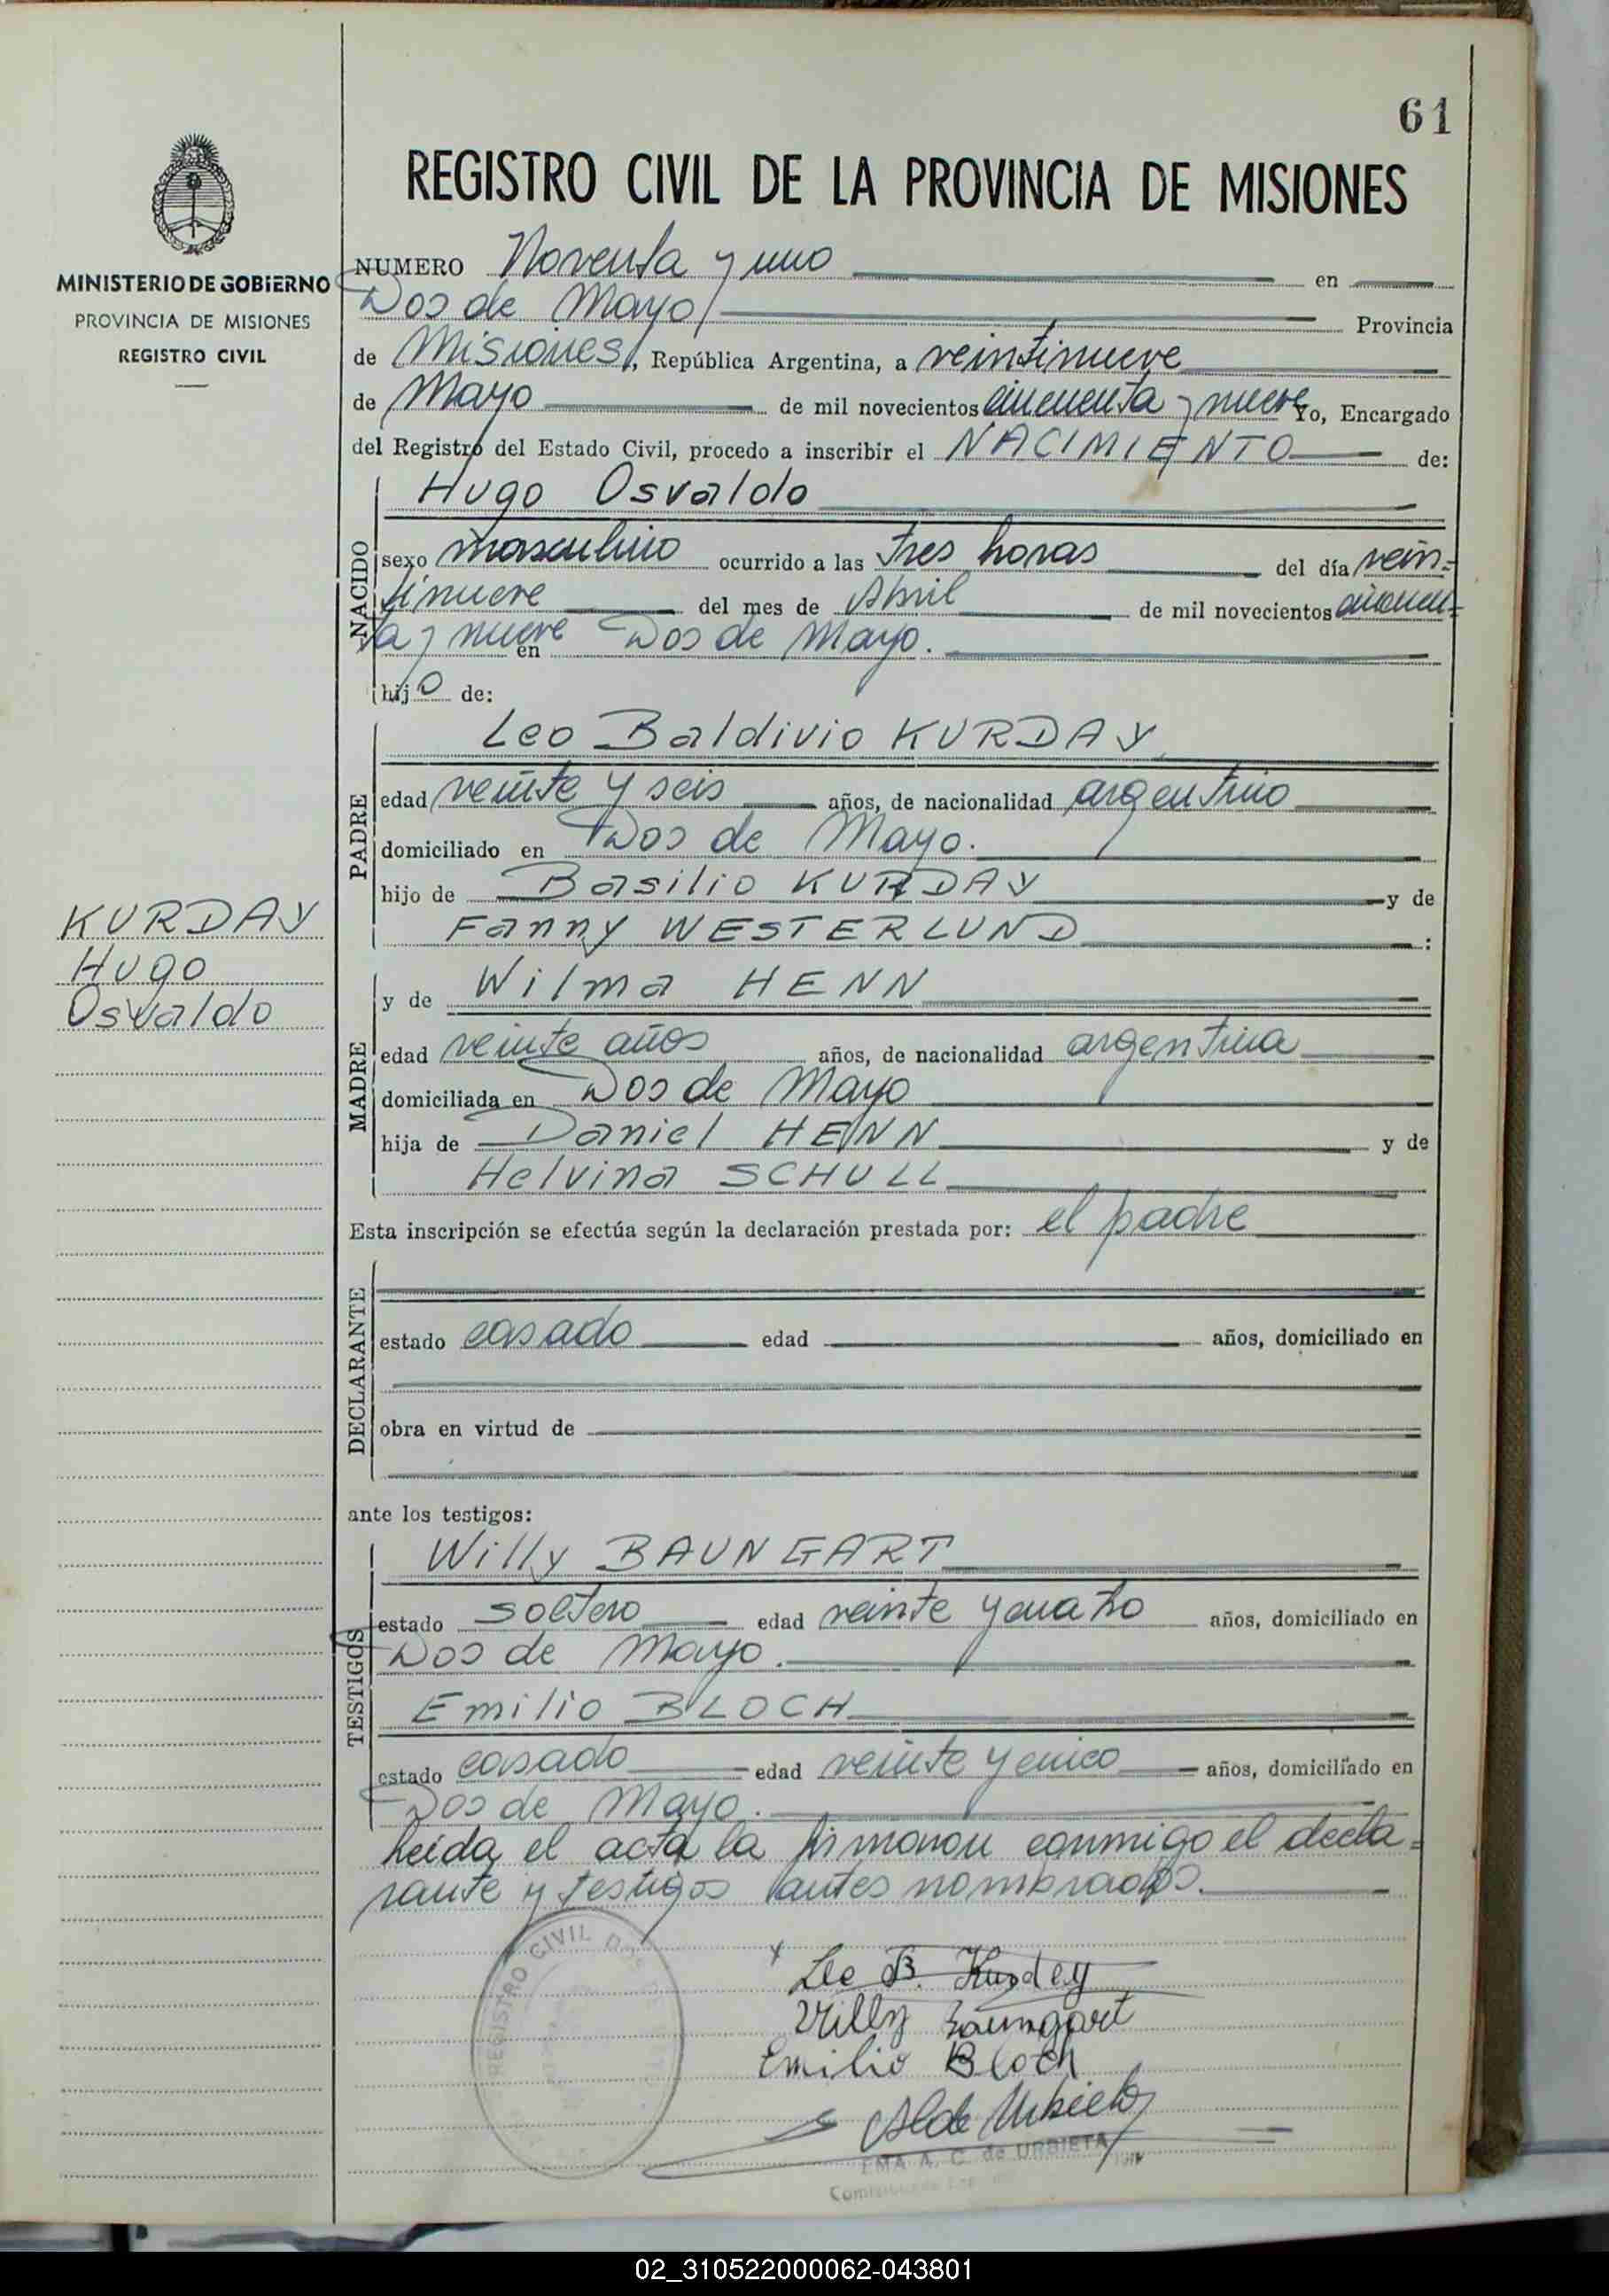 61
REGISTRO CIVIL DE LA PROVINCIA DE MISIONES
MINISTERIO DE GOBIERNO
PROVINCIA DE MISIONES
REGISTRO CIVIL
NUMERO Noventa y uno en
Dos de Mayo Provincia
de Misiones, República Argentina, a veintinueve
de Mayo de mil novecientos cincuenta y nueve Yo, Encargado
del Registro del Estado Civil, procedo a inscribir el NACIMIENTO de:
Hugo Osvaldo
NACIDO
sexo masculino ocurrido a las tres horas del día vein=
tinueve del mes de Abril de mil novecientos cincuen=
ta y nueve en Dos de Mayo.
hijo de:
Leo Baldivio KURDAY
PADRE
edad veinte y seis años, de nacionalidad argentino
domiciliado en Dos de Mayo.
hijo de Basilio KURDAY y de
Fanny WESTERLUND :
KURDAY
Hugo
Osvaldo
y de Wilma HENN
MADRE
edad veinte años años, de nacionalidad argentina
domiciliada en Dos de Mayo
hija de Daniel HENN y de
Helvina SCHULL
Esta inscripción se efectúa según la declaración prestada por: el padre
DECLARANTE
estado casado edad años, domiciliado en
obra en virtud de
ante los testigos:
Willy BAUNGART
TESTIGOS
estado soltero edad veinte y cuatro años, domiciliado en
Dos de Mayo.
Emilio BLOCH
estado casado edad veinte y cinco años, domiciliado en
Dos de Mayo.
Leida el acta la firmaron conmigo el decla=
rante y testigos antes nombrados.
REGISTRO CIVIL
Leo B. Kurdey
Willy Baumgart
Emilio Bloch
EMA A. C. de URBIETA
02_310522000062-043801